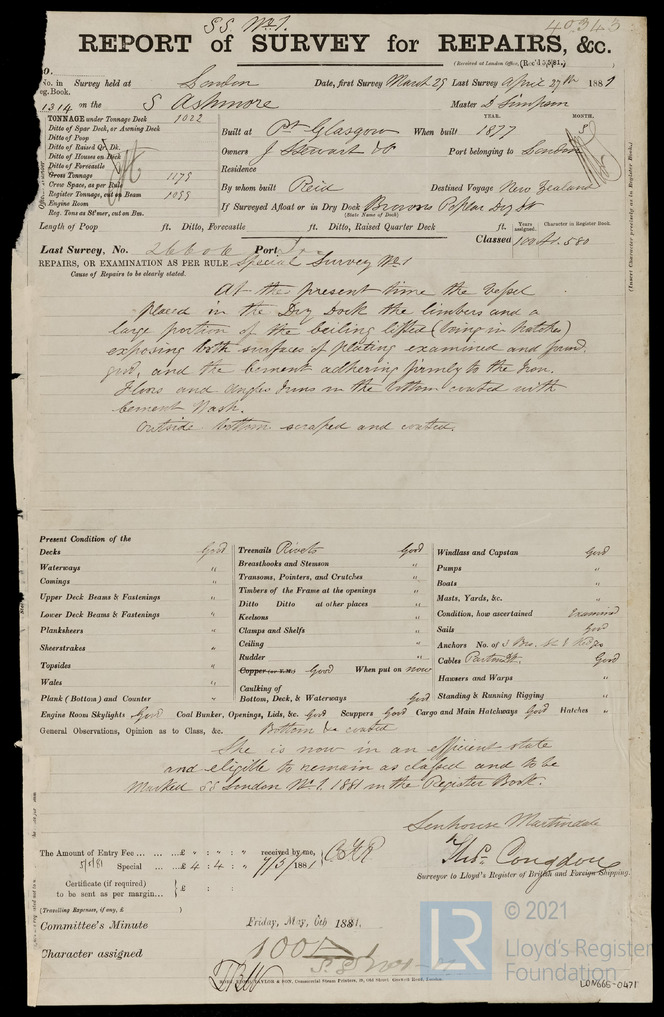 S.S. No. 1. 40343
REPORT of SURVEY for REPAIRS, &c.
(Received at London Office, Rec'd 5/5/81.)
No. in Survey held at London Date, first Survey March 29 Last Survey April 27th 1881
Reg. Book.
1314 on the S Ashmore Master D Simpson
TONNAGE under Tonnage Deck 1022
Ditto of Spar Deck, or Awning Deck
Ditto of Poop
Ditto of Raised Qr. Dk.
Ditto of Houses on Deck
Ditto of Forecastle
Gross Tonnage 1179
Crew Space, as per Rule
Register Tonnage, cut on Beam 1099
Engine Room
Reg. Tons as St'mer, cut on Bm.
YEAR. MONTH.
Built at Pt. Glasgow When built 1877 5
Owners J Stewart & Co Port belonging to London
Residence
By whom built Reid Destined Voyage New Zealand
If Surveyed Afloat or in Dry Dock Browns Poplar Dry Dk
(State Name of Dock)
Length of Poop ft. Ditto, Forecastle ft. Ditto, Raised Quarter Deck ft.
Years assigned. Character in Register Book.
Last Survey, No. 26606 Port Lon Classed 100 A1. 5 80
(Insert Character precisely as in Register Book.)
REPAIRS, OR EXAMINATION AS PER RULE Special Survey No. 1
Cause of Repairs to be clearly stated.
At the present time the Vessel
placed in the Dry Dock the limbers and a
large portion of the ceiling lifted (being in hatches)
exposing both surfaces of plating examined and found
good, and the cement adhering firmly to the Iron.
Floors and angle Irons in the bottom coated with
cement Wash.
Outside bottom scraped and coated.
Present Condition of the
Decks Good
Waterways "
Comings "
Upper Deck Beams & Fastenings "
Lower Deck Beams & Fastenings "
Planksheers "
Sheerstrakes "
Topsides "
Wales "
Plank (Bottom) and Counter "
Treenails Rivets Good
Breasthooks and Stemson "
Transoms, Pointers, and Crutches "
Timbers of the Frame at the openings "
Ditto Ditto at other places "
Keelsons "
Clamps and Shelfs "
Ceiling "
Rudder "
Copper (or Y.M.) Good When put on now
Caulking of
Bottom, Deck, & Waterways Good
Windlass and Capstan Good
Pumps "
Boats "
Masts, Yards, &c. "
Condition, how ascertained Examined
Sails Good
Anchors No. of 3 Bro. St & 1 Kedge
Cables Good
Hawsers and Warps "
Standing & Running Rigging "
Engine Room Skylights Good Coal Bunker, Openings, Lids, &c. Good Scuppers Good Cargo and Main Hatchways Good Hatches "
General Observations, Opinion as to Class, &c. Bottom &c coated
She is now in an efficient state
and eligible to remain as classed and to be
Marked SS London No. 1. 1881 in the Register Book.
Senhouse Martindale
Thos. Congdon
Surveyor to Lloyd's Register of British and Foreign Shipping.
The Amount of Entry Fee ... £ " : " : " received by me,
5/5/81 Special ... £ 4 : 4 : " 7/5/1881
Certificate (if required)
to be sent as per margin... £ : :
(Travelling Expenses, if any, £ )
Committee's Minute Friday, May, 6th 1881.
Character assigned 100 A 1
© 2021
LR
Lloyd's Register
Foundation
LON665-0471